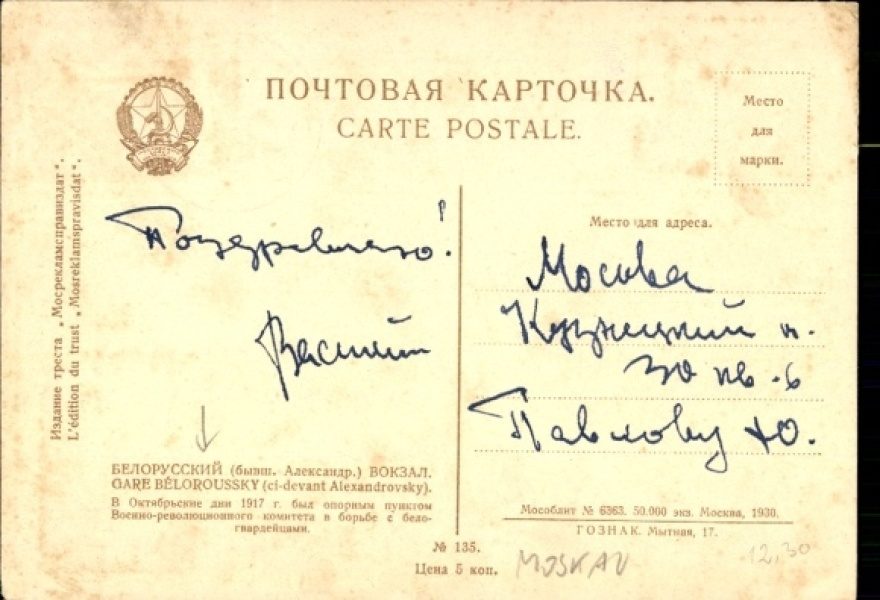 ПОЧТОВАЯ КАРТОЧКА.
CARTE POSTALE.
Место
для
марки.
Издание треста „Мосрекламсправиздат“.
L'édition du trust „Mosreklamspravisdat“.
Поздравляю!
Василий
БЕЛОРУССКИЙ (бывш. Александр.) ВОКЗАЛ.
GARE BÉLOROUSSKY (ci-devant Alexandrovsky).
В Октябрьские дни 1917 г. был опорным пунктом
Военно-революционного комитета в борьбе с бело-
гвардейцами.
Место для адреса.
Москва
Кузнецкий п.
30 кв. 6
Павлову Ю.
Мособлит № 6363. 50.000 экз. Москва, 1930.
ГОЗНАК. Мытная, 17.
№ 135.
Цена 5 коп.
MOSKAU
12,30